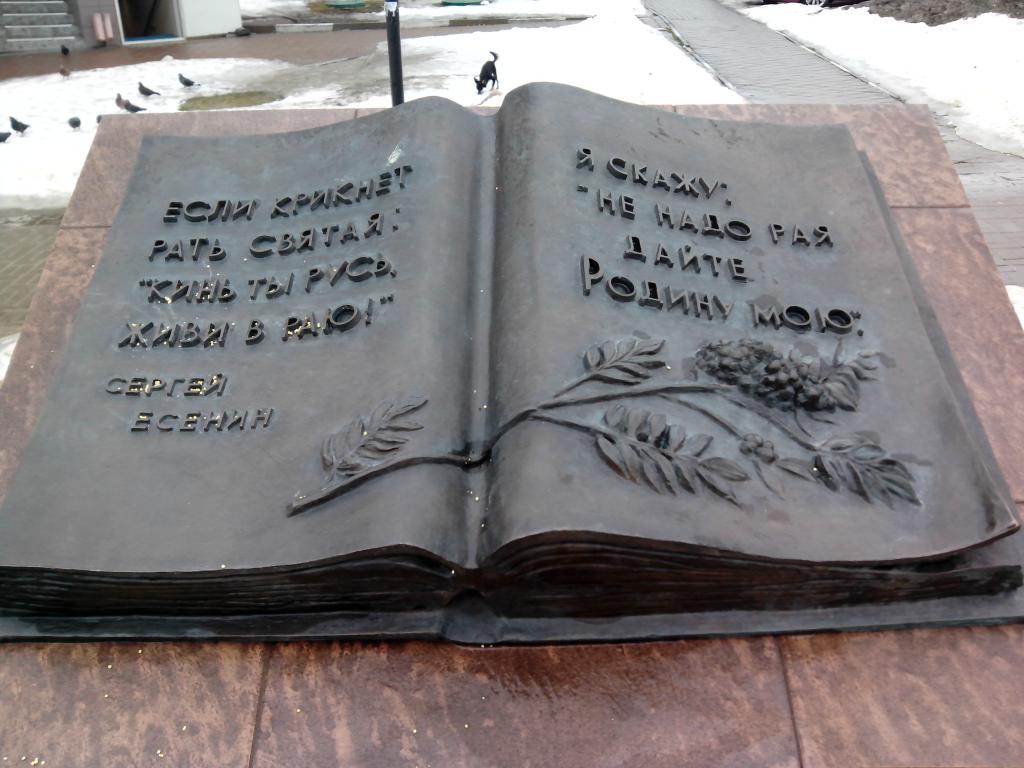 ЕСЛИ КРИКНЕТ
РАТЬ СВЯТАЯ:
"КИНЬ ТЫ РУСЬ,
ЖИВИ В РАЮ!"
СЕРГЕЙ
ЕСЕНИН
Я СКАЖУ:
"НЕ НАДО РАЯ
ДАЙТЕ
РОДИНУ МОЮ".